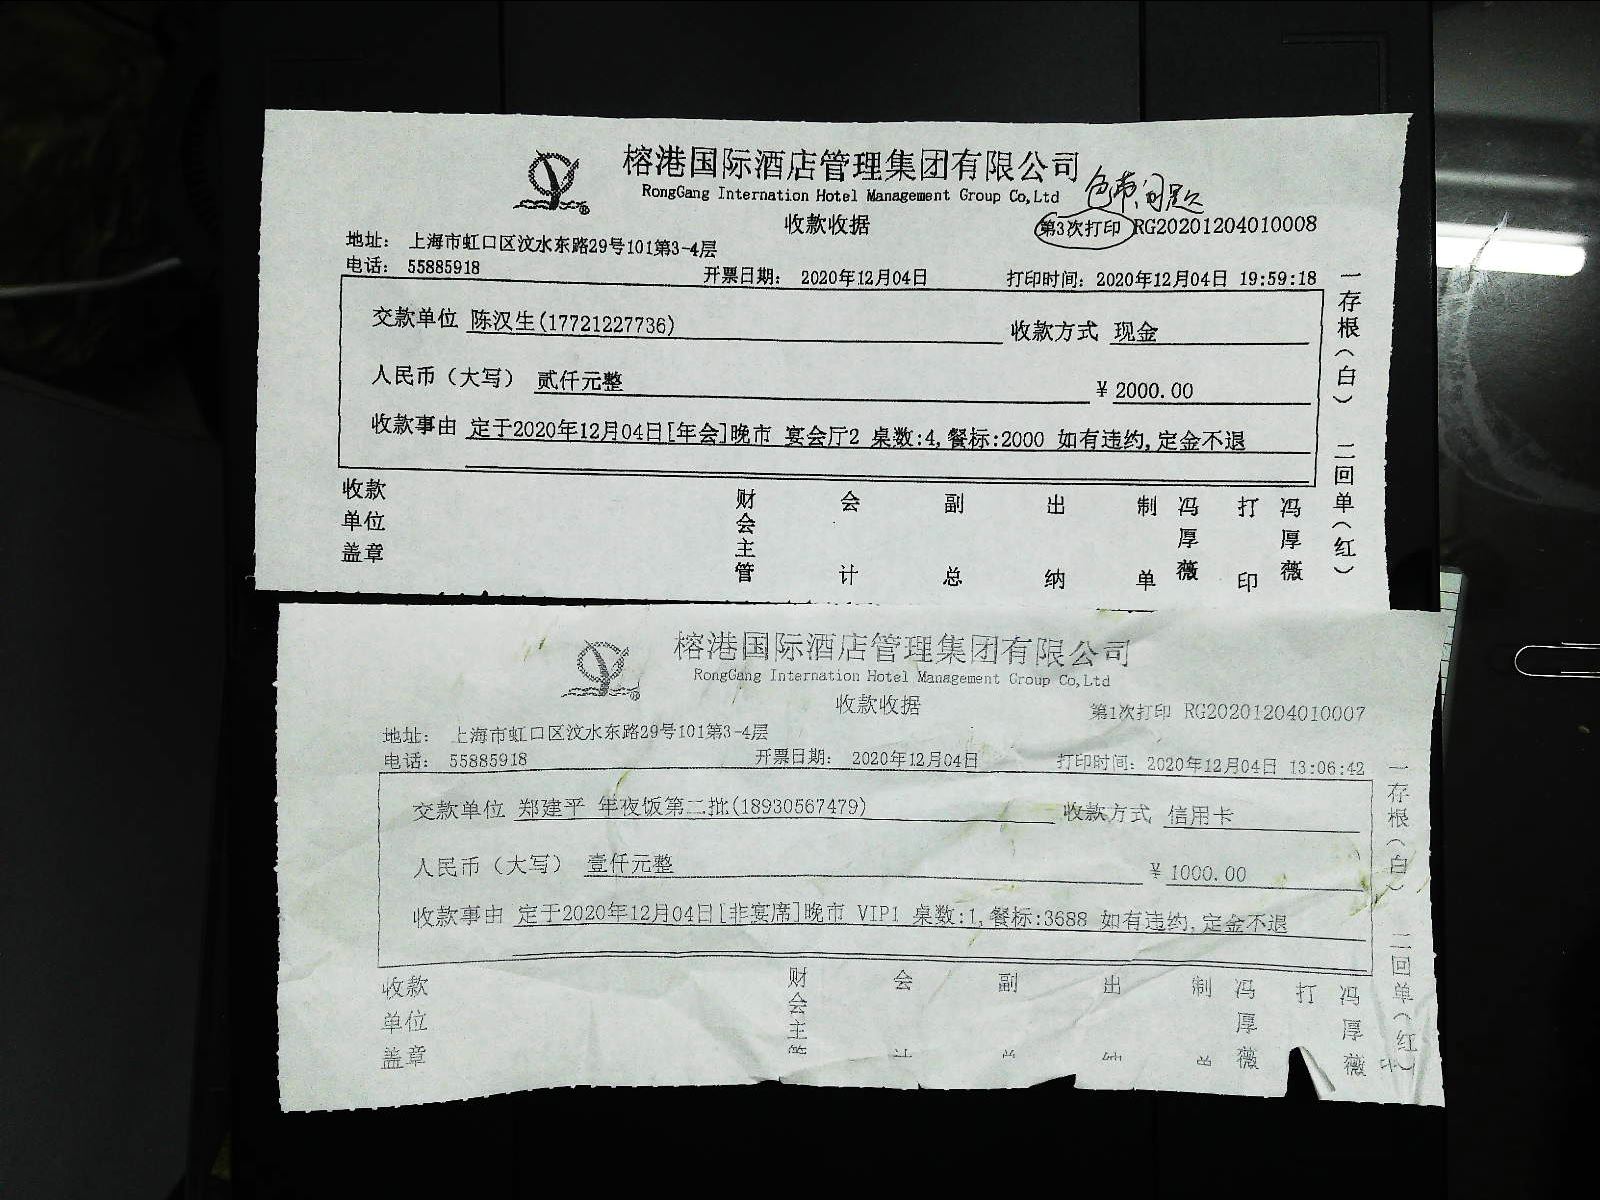 榕港国际酒店管理集团有限公司
RongGang Internation Hotel Management Group Co,Ltd
色带问题
收款收据
第3次打印 RG20201204010008
地址： 上海市虹口区汶水东路29号101第3-4层
电话： 55885918 开票日期： 2020年12月04日 打印时间： 2020年12月04日 19:59:18
交款单位 陈汉生(17721227736) 收款方式 现金
人民币（大写） 贰仟元整 ￥2000.00
收款事由 定于2020年12月04日[年会]晚市 宴会厅2 桌数:4,餐标:2000 如有违约,定金不退
收款单位盖章 财会主管 会计 副总 出纳 制单 冯厚薇 打印 冯厚薇
一存根（白） 二回单（红）
榕港国际酒店管理集团有限公司
RongGang Internation Hotel Management Group Co,Ltd
收款收据
第1次打印 RG20201204010007
地址： 上海市虹口区汶水东路29号101第3-4层
电话： 55885918 开票日期： 2020年12月04日 打印时间： 2020年12月04日 13:06:42
交款单位 郑建平 年夜饭第二批(18930567479) 收款方式 信用卡
人民币（大写） 壹仟元整 ￥1000.00
收款事由 定于2020年12月04日[非宴席]晚市 VIP1 桌数:1,餐标:3688 如有违约,定金不退
收款单位盖章 财会主管 会计 副总 出纳 制单 冯厚薇 打 冯厚薇
一存根（白） 二回单（红）